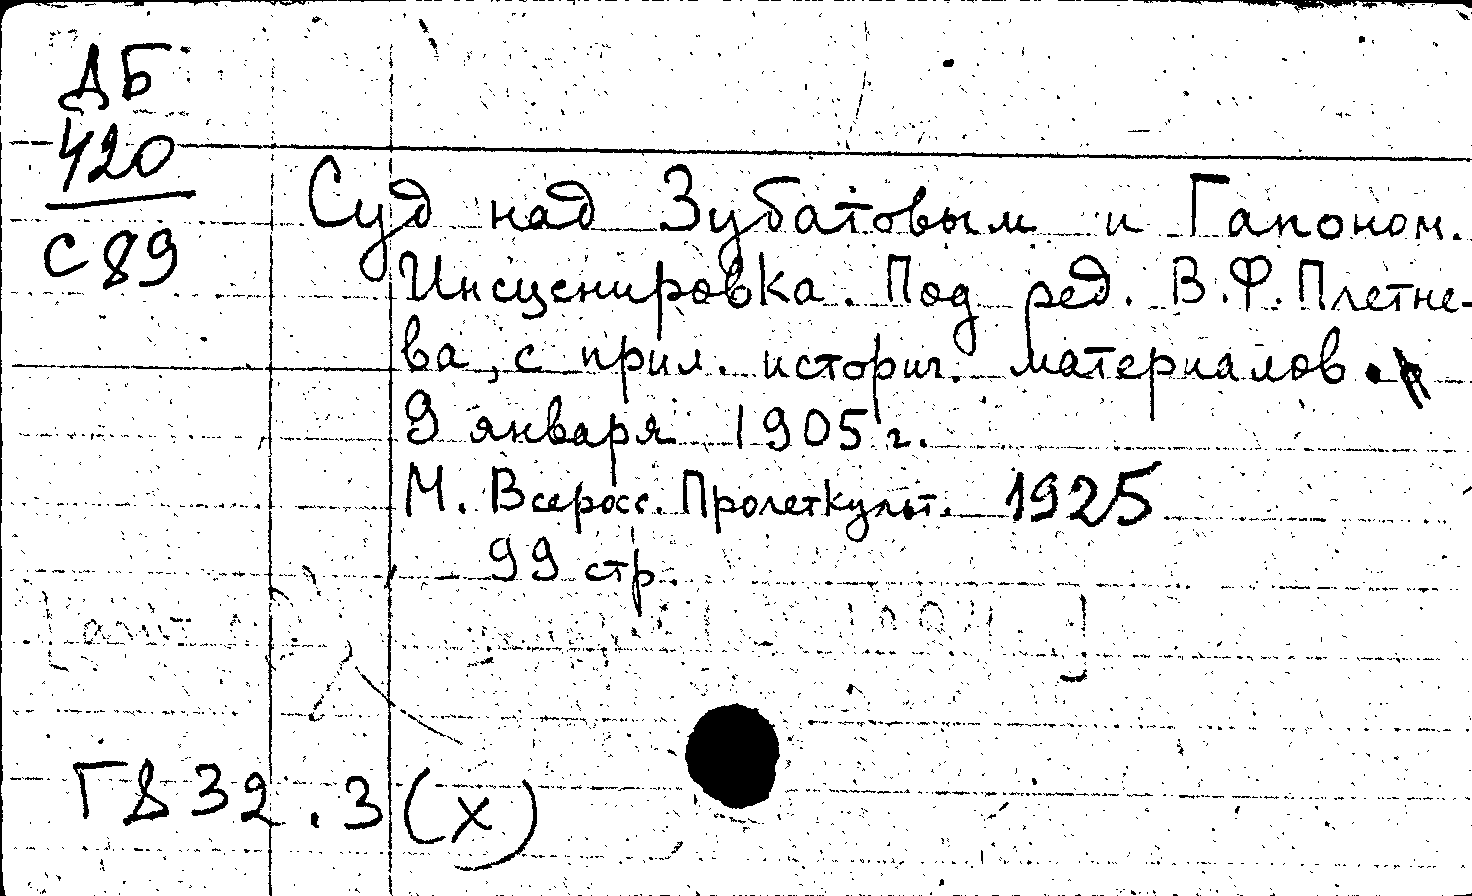 ДБ
420
С89
Суд над Зубатовым и Гапоном.
Инсценировка. Под ред. В.Ф. Плетне-
ва, с прил. историч. материалов.
9 января 1905 г.
М. Всеросс. Пролеткульт. 1925
99 стр.
Г832.3(х)